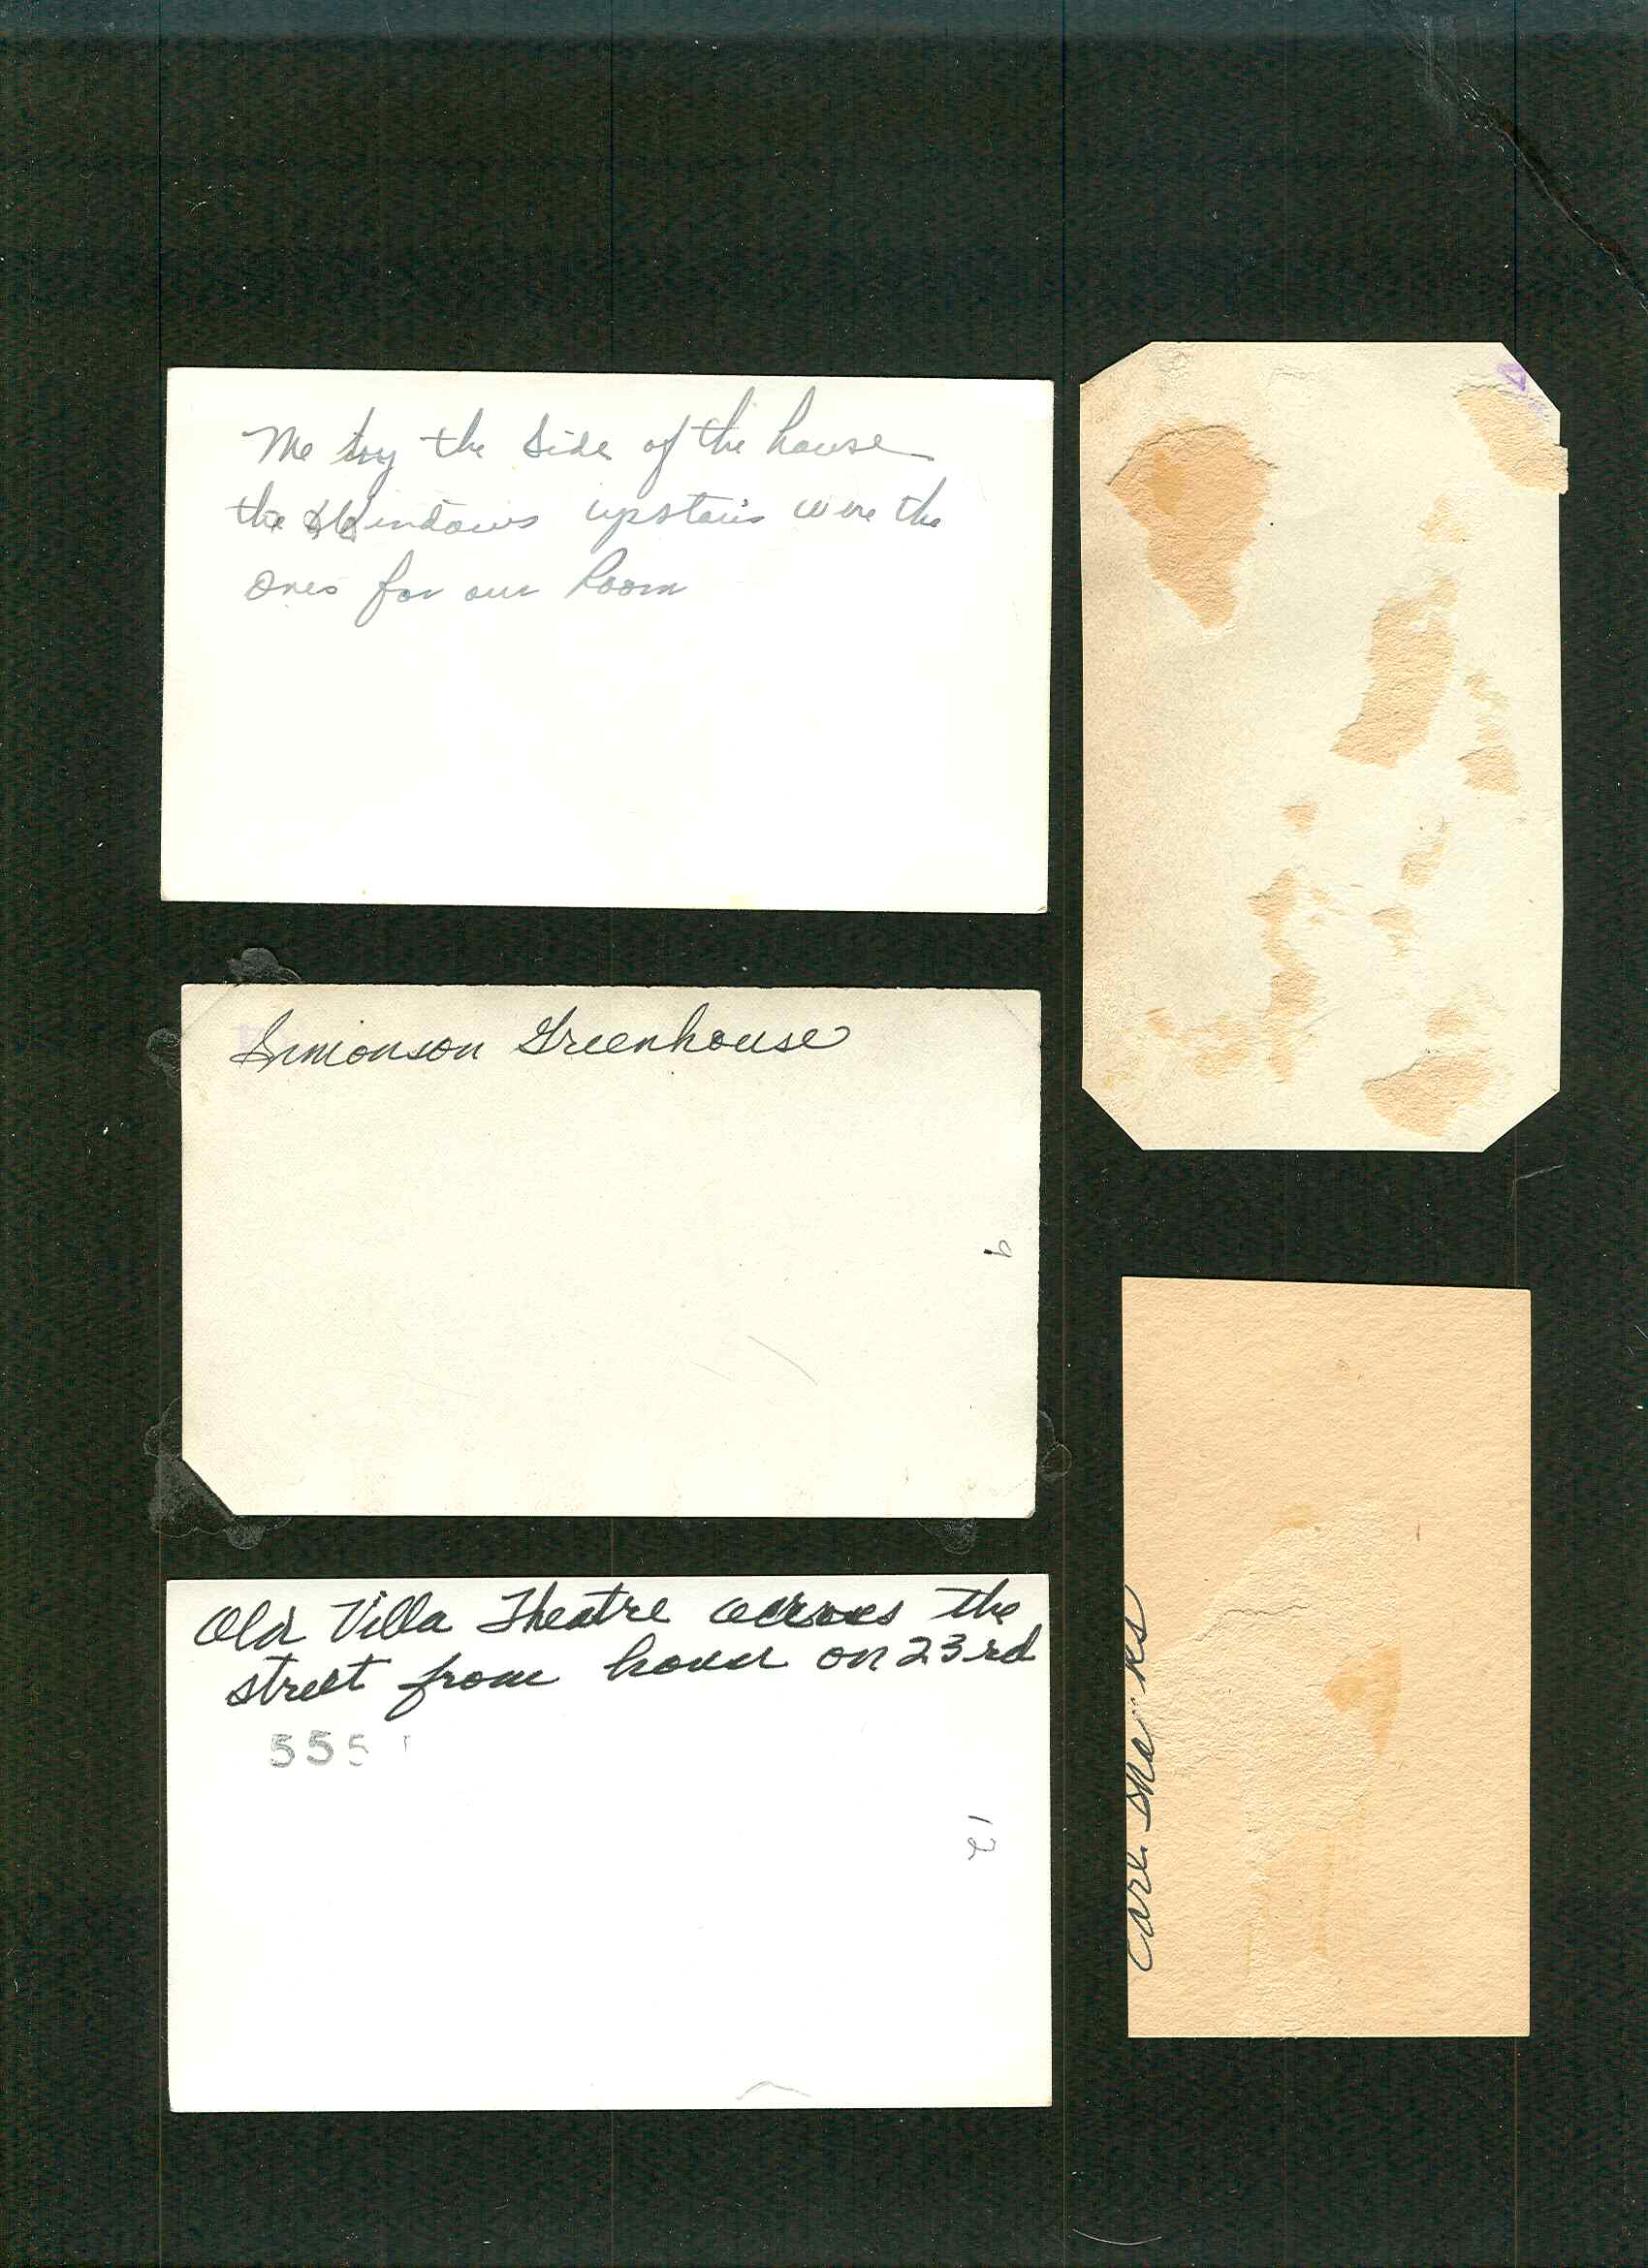 Me by the Side of the house
the Windows upstairs were the
ones for our Room
Simonson Greenhouse
9
Old Villa Theatre across the
street from house on 23rd
555
12
Carl